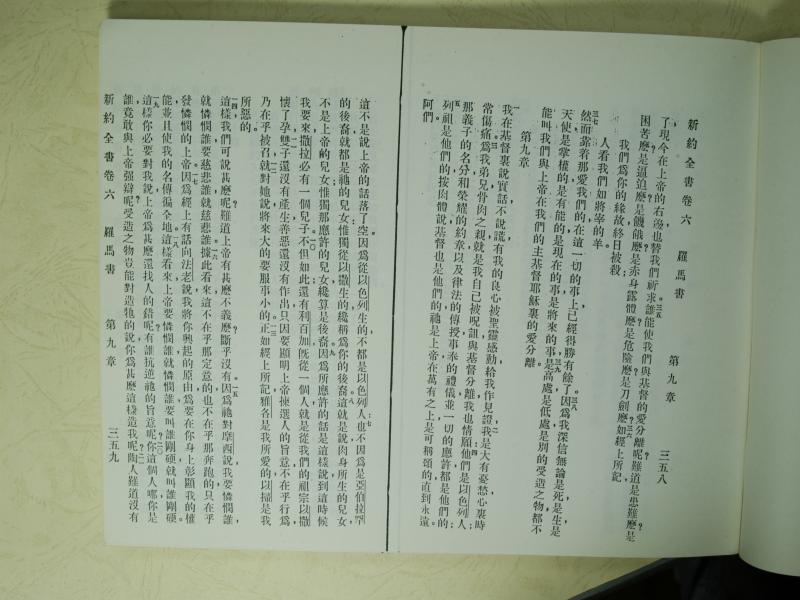 新約全書卷六　羅馬書　第九章　三五八
了，現今在上帝的右邊，也替我們祈求。三五誰能使我們與基督的愛分離呢？難道是患難麽？是
困苦麽？是逼迫麽？是饑餓麽？是赤身露體麽？是危險麽？是刀劍麽？三六如經上所記，
我們爲你的緣故，終日被殺，
人看我們如將宰的羊。
三七然而靠着那愛我們的，在這一切的事上，已經得勝有餘了。三八因爲我深信無論是死，是生，是
天使，是掌權的，是有能的，是現在的事，是將來的事，三九是高處，是低處，是別的受造之物，都不
能叫我們與上帝在我們的主基督耶穌裏的愛分離。
第九章
我在基督裏說實話，不說謊，有我的良心被聖靈感動給我作見證，二我是大有憂愁，心裏時
常傷痛。三爲我弟兄骨肉之親，就是我自己被呪詛，與基督分離，我也情願。四他們是以色列人，
那義子的名分和榮耀的約章，以及律法的傳授，事奉的禮儀，並一切的應許，都是他們的，
五列祖是他們的，按肉體說，基督也是他們的，祂是上帝在萬有之上，是可稱頌的，直到永遠，
阿們。
這不是說上帝的話落了空，因爲從以色列生的，不都是以色列人；七也不因爲是亞伯拉罕
的後裔，就都是祂的兒女；惟獨從以撒生的，纔稱爲你的後裔。八這就是說，肉身所生的兒女，
不是上帝的兒女，惟獨那應許的兒女，纔算是後裔。九因爲所應許的話是這樣說，到這時候
我要來，撒拉必有一個兒子。一〇不但如此，還有利百加，旣從一個人，就是從我們的祖宗以撒
懷了孕，一一雙子還沒有產生，善惡還沒有作出，只因要顯明上帝揀選人的旨意，不在乎行爲，
乃在乎被召，一二就對她說，將來大的要服事小的。一三正如經上所記，雅各是我所愛的，以掃是我
所惡的。
一四這樣，我們可說甚麽呢？難道上帝有甚麽不義麽？斷乎沒有。一五因爲祂對摩西說，我要憐憫誰，
就憐憫誰，要慈悲誰，就慈悲誰。一六據此看來，這不在乎那定意的，也不在乎那奔跑的，只在乎
發憐憫的上帝。一七因爲經上有話向法老說，我將你興起的原由，爲要在你身上彰顯我的權
能，並且使我的名傳徧全地。一八這樣看來，上帝要憐憫誰，就憐憫誰，要叫誰剛硬，就叫誰剛硬。
一九這樣，你必要對我說，上帝爲甚麽還找人的錯呢？有誰抗逆祂的旨意呢？二〇你這個人哪，你是
誰，竟敢與上帝强辯呢？受造之物豈能對造牠的說，你爲甚麽這樣造我呢？陶人難道沒有
新約全書卷六　羅馬書　第九章　三五九